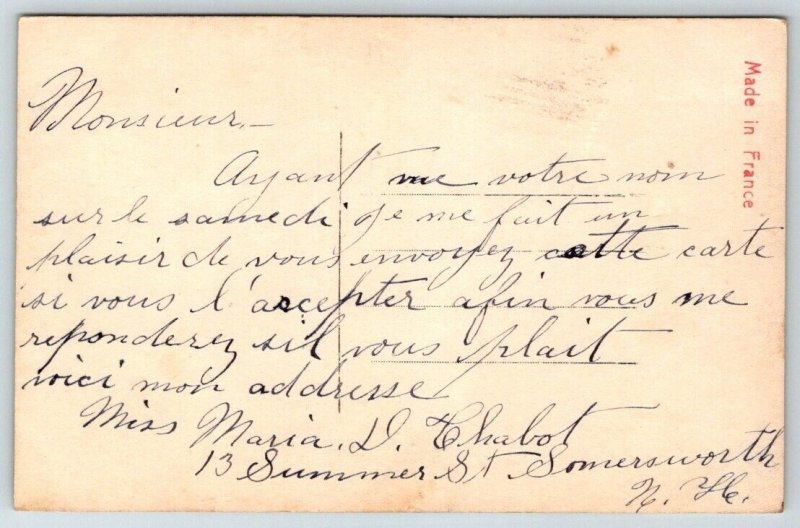 Made in France
Monsieur,—
Ayant vue votre nom
sur le samedi je me fait un
plaisir de vous envoyez cette carte
si vous l'accepter afin vous me
reponderez sil vous plait
voici mon addresse
Miss Maria. D. Chabot
13 Summer St Somersworth
N. H.